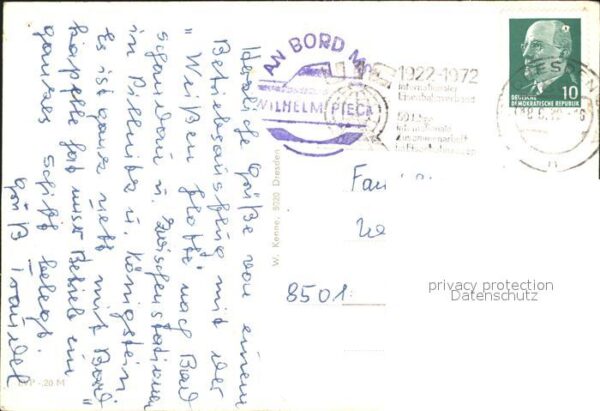 Herzliche Grüße von einem
Betriebsausflug mit der
"Weißen Flotte" nach Bad
Schandau u. Zwischenstationen
in Pillnitz u. Königstein
Es ist ganz nett mit Bord-
kapelle hat unser Betrieb ein
ganzes Schiff belegt.
Gruß Traudel
EVP -,20 M
W. Kenne, 8020 Dresden
AN BORD MS
WILHELM PIECK
1922-1972
Internationaler
Eisenbahnverband
50 Jahre
internationale
Zusammenarbeit
DEUTSCHE
DEMOKRATISCHE REPUBLIK
10
8501
privacy protection
Datenschutz